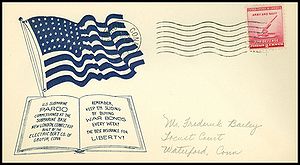 U.S. SUBMARINE
PARGO
COMMISSIONED AT THE
SUBMARINE BASE
NEW LONDON, CONNECTICUT
BUILT BY THE
ELECTRIC BOAT CO.
GROTON, CONN.
REMEMBER,
KEEP ON BUYING
WAR BONDS
EVERY WEEK!
THE BEST INSURANCE FOR
LIBERTY!
ARMY AND NAVY
FOR DEFENSE
Mr. Frederick Bailey
Locust Court
Waterford, Conn